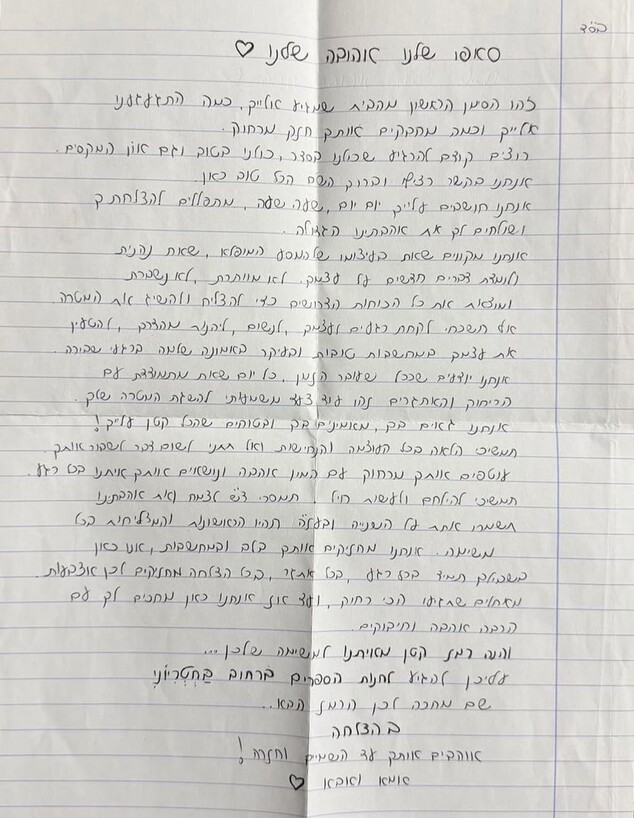 בס"ד
סאפו שלנו אהובה שלנו ♡
זהו הסמן הראשון מהבית שמגיע אלייך, כמה התגעגענו
אלייך וכמה מחבקים אותך חזק מרחוק.
רוצים קודם להרגיע שכולנו בסדר, כולנו בטוב וגם און המקסים.
אנחנו בקשר רציף וברוך השם הכל טוב כאן.
אנחנו חושבים עלייך יום יום, שעה שעה, מתפללים להצלחתך
ושולחים לך את אהבתינו הגדולה.
אנחנו מקווים שאת בעיצומו של המסע המופלא, שאת נהנית
לומדת דברים חדשים על עצמך, לא מוותרת, לא נשברת
ומוצאת את כל הכוחות הדרושים כדי להצליח ולהשיג את המטרה.
אל תשכחי לקחת רגעים לעצמך, לנשום, ליהנות מהדרך, להטעין
את עצמך במחשבות טובות ובעיקר באמונה שלמה ברגעי שבירה.
אנחנו יודעים שככל שעובר הזמן, כל יום שאת מתמודדת עם
הריחוק והאתגרים זהו עוד צעד משמעותי להשגת המטרה שלך.
אנחנו גאים בך, מאמינים בך ובטוחים שהכל קטן עלייך!
תמשיכי הלאה בכל העוצמה והנחישות ואל תתני לשום דבר לשבור אותך.
עוטפים אותך מרחוק עם המון אהבה ונושאים אותך איתנו בכל רגע.
תמשיכי להילחם ולעשות חיל! תמסרי ד"ש לצמח ואת אהבתנו
תשמרו אחת על השנייה ובע"ה תהיו הראשונות והמצליחות בכל
משימה. אנחנו מחזיקים אותך בלב ובמחשבות, אנו כאן
בשבילך תמיד בכל רגע, בכל אתגר, בכל הצלחה מחזיקים לכן אצבעות
מאחלים שתגיעי הכי רחוק, ועד אז אנחנו כאן מחכים לך עם
הרבה אהבה וחיבוקים.
והנה רמז קטן מאיתנו למשימה שלכן ...
עליכן להגיע לחנות הספרים ברחוב בַּחְטְרִיוֹנִי
שם מחכה לכן הרמז הבא..
בהצלחה
אוהבים אותך עד השמים וחזרה!
אמא ואבא ♡